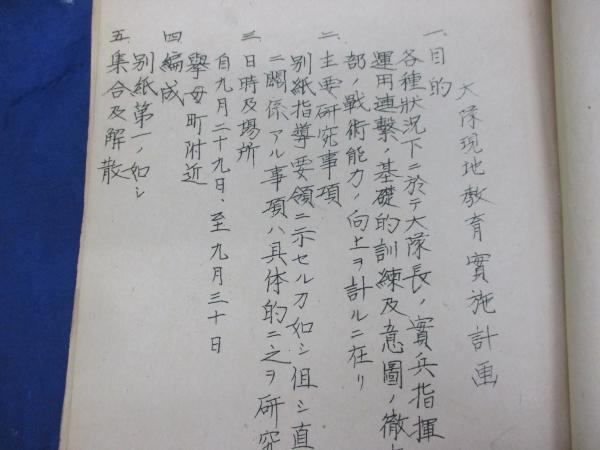 大隊現地教育實施計画
一、目的
各種狀況下ニ於テ大隊長ノ實兵指揮
運用連繋ノ基礎的訓練及意圖ノ徹
部ノ戰術能力ノ向上ヲ計ルニ在リ
二、主要研究事項
別紙指導要領ニ示セル刀如シ但シ直
ニ關係アル事項ハ具体的ニ之ヲ研究
三、日時及場所
自九月二十九日、至九月三十日
擧母町附近
四、編成
別紙第一ノ如シ
五、集合及解散